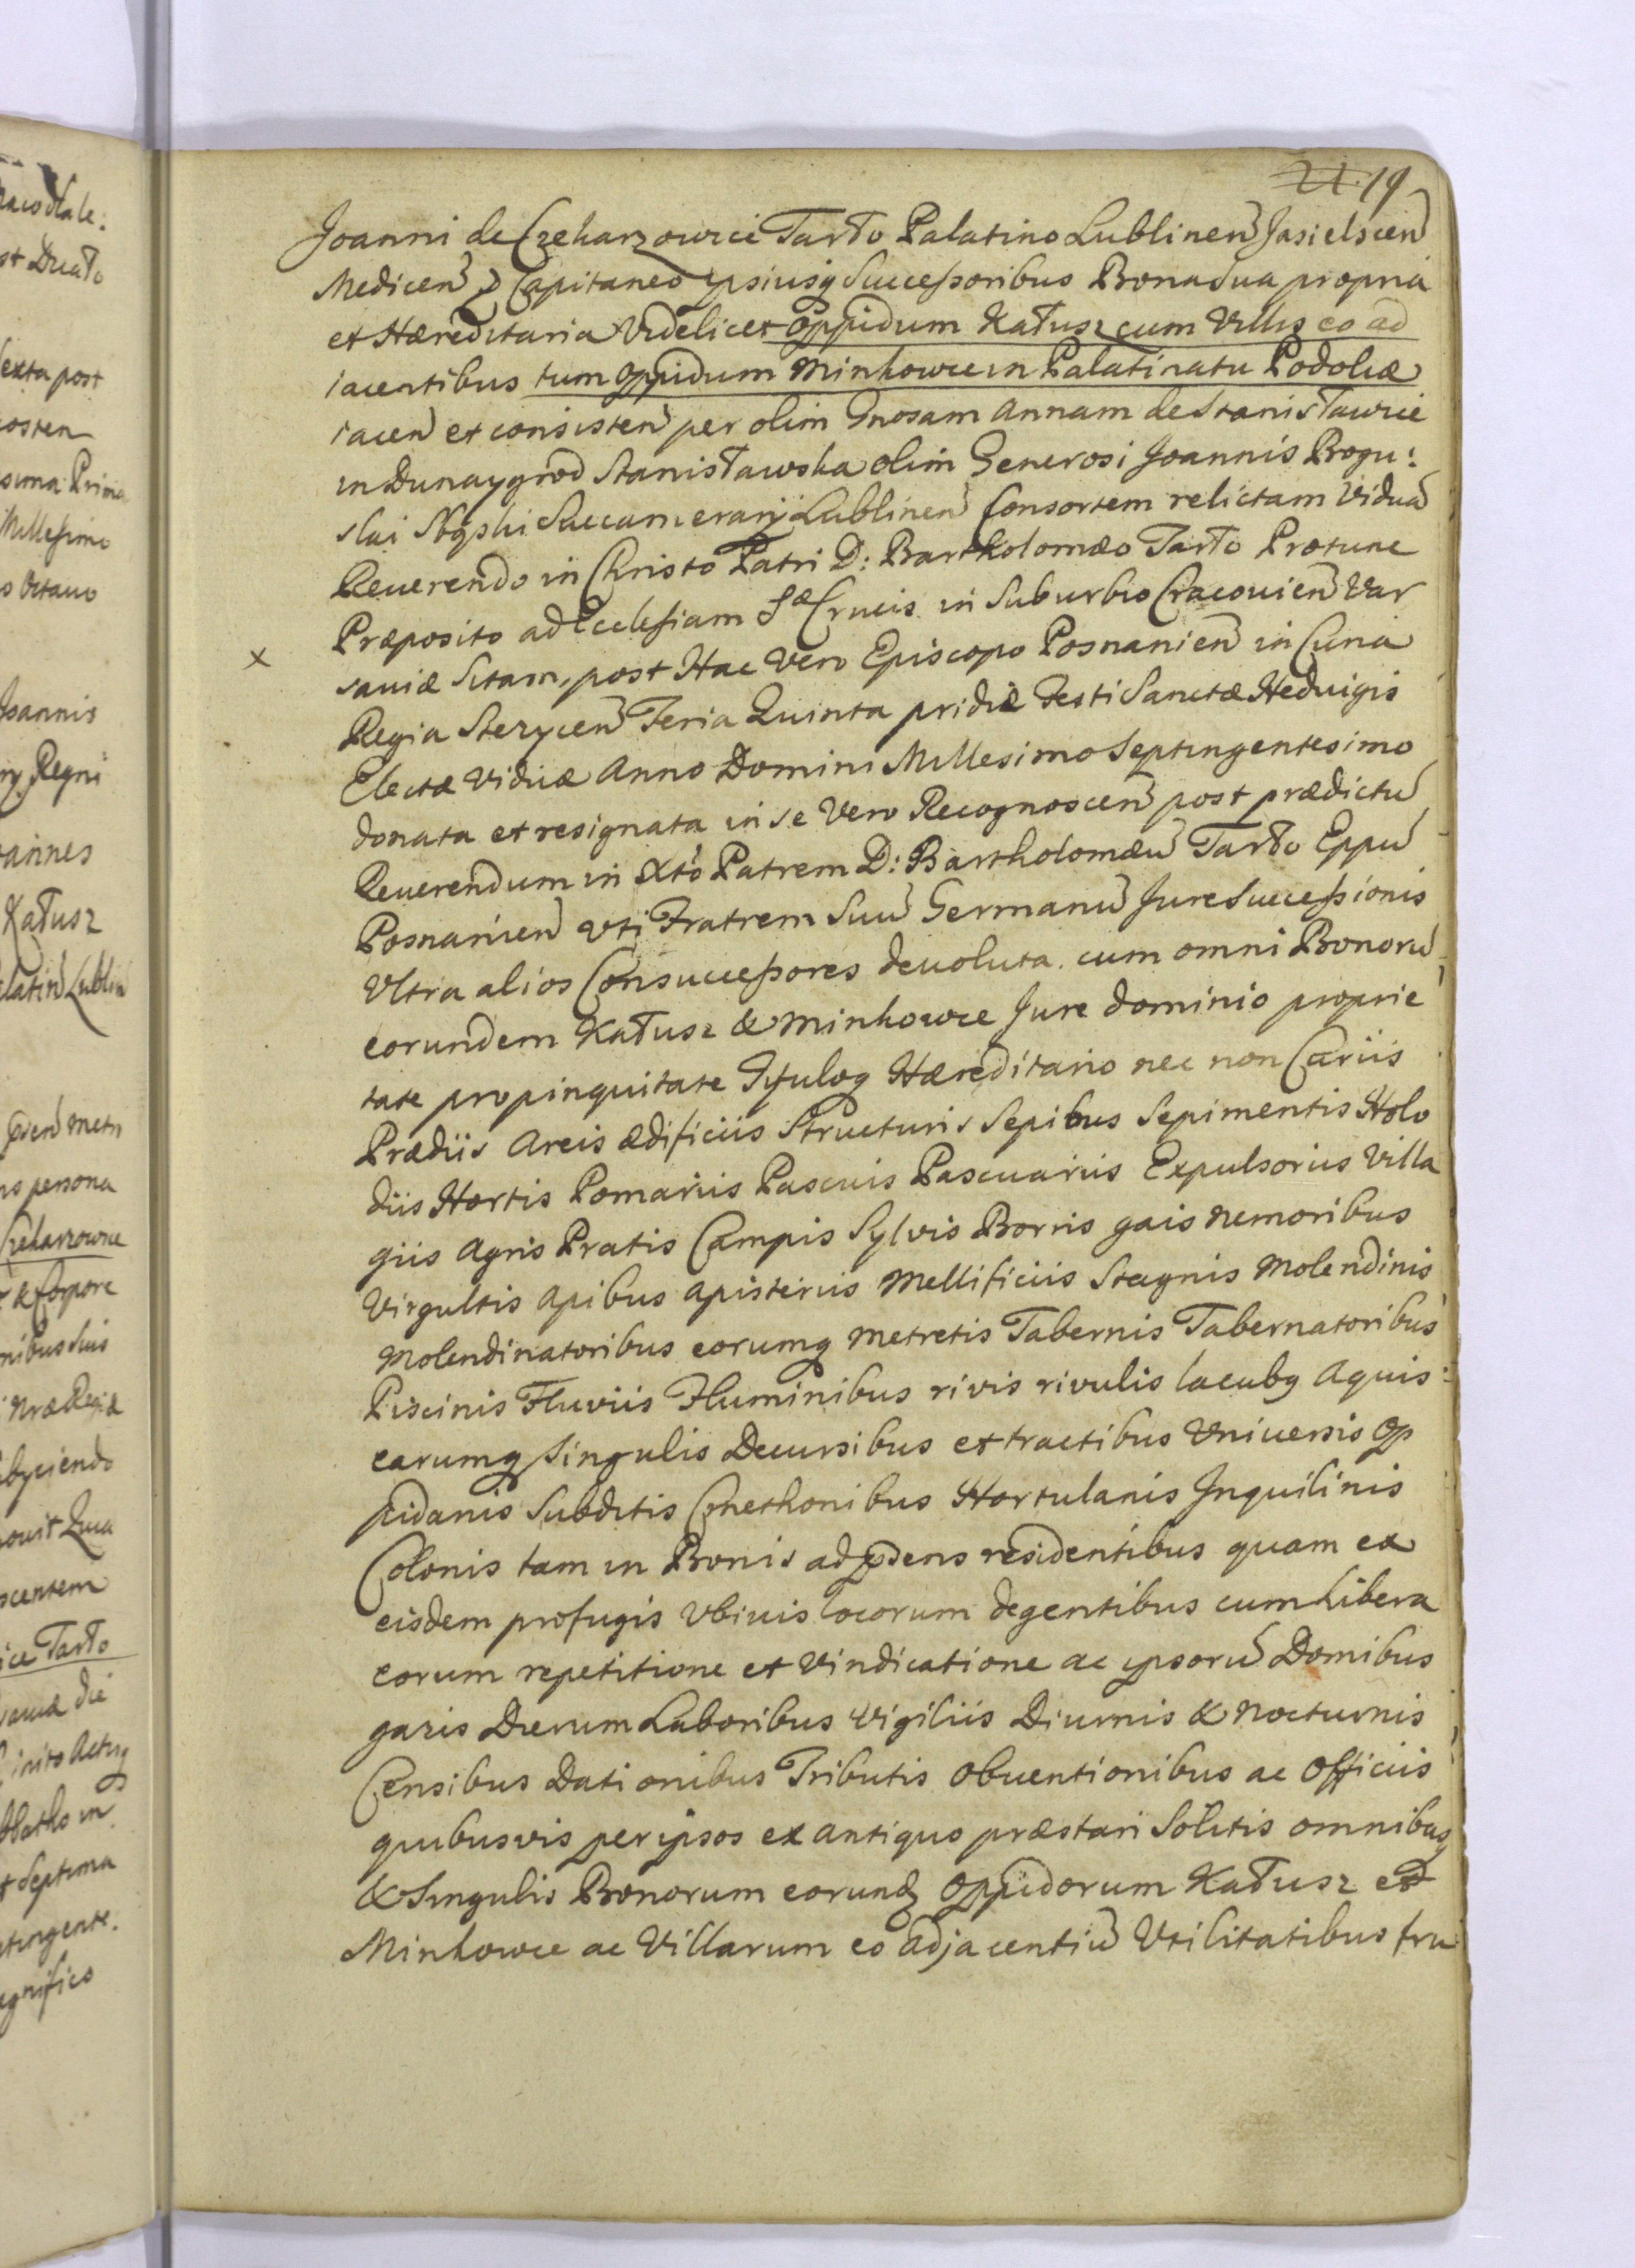 21. 19
Joanni de Czekarzowice Tarło Palatino Lublinen Jasielscen
Medicen & Capitaneo ipsiusq Successoribus Bona sua propria
et Hæreditaria Videlicet Oppidum Kałusz cum Villis eo ad
iacentibus tum Oppidum Minkowce in Palatinatu Podoliæ
iacen et consisten per olim Gnosam Annam de Stanisławice
in Dunaygrod Stanisławska olim Generosi Joannis Bogu:
slai Succamerarij Lublinen Consortem relictam Viduã
Reuerendo in Christo Patri D: Bartholomæo Tarło Protunc
Præposito ad Ecclesiam Sæ Crucis in Suburbio Cracouien Var
x sauiæ Sitam, post Hac Vero Episcopo Posnanien in Curia
Regia Stezycen Feria Quinta pridie Festi Sanctæ Heduigis
Electæ Viduæ Anno Domini Millesimo Septingentesimo
donata et resignata in se Vero Recognoscen post prædictũ
Reuerendum in Xto Patrem D: Bartholomæũ Tarło Eppũ
Posnanien uti Fratrem Suũ Germanũ Jure Successionis
Ultra alios Consuccessores deuoluta. cum omni Bonorũ
eorundem Kałusz & Minkowce Jure dominio proprie
tate propinquitate Tytuloq Hæreditario nec non Cariis
Prædiis Areis ædificiis Structuris Sepibus Sepimentis Holo
diis Hortis Pomariis Pascuis Pascuariis Expulsoriis Villa
giis Agris Pratis Campis Sylvis Borris gais Nemoribus
Virgultis Apibus Apisteriis Mellificiis Stagnis Molendinis
Molendinatoribus eorumq Metretis Tabernis Tabernatoribus
Piscinis Fluviis Fluminibus rivis rivulis lacubq Aquis
earumq Singulis Decursibus et tractibus Uniuersis Op
pidanis Subditis Cmethonibus Hortulanis Inquilinis
Colonis tam in Bonis ad psens residentibus quam ex
eisdem profugis Ubiuis locorum degentibus cum Libera
eorum repetitione et Vindicatione ac ipsorũ Domibus
gazis Dierum Laboribus Vigiliis Diurnis & Nocturnis
Censibus Dationibus Tributis Obuentionibus ac Officiis
quibusvis per ipsos ex antiquo præstari Solitis omnibusq
& Singulis Bonorum eorundq Oppidorum Kałusz et
Minkowce ac Villarum eo adjacentiũ Utilitatibus fru